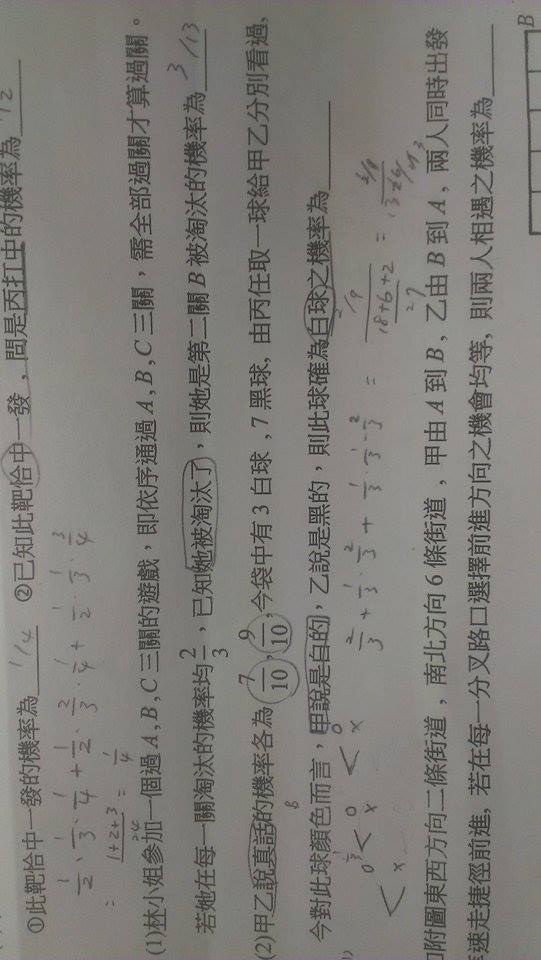 ①此靶恰中一發的機率為 1/4 ②已知此靶恰中一發，問是丙打中的機率為 1/2
1/2·1/3·1/4 + 1/2·2/3·1/4 + 1/2·1/3·3/4
= (1+2+3)/24 = 1/4
(1)林小姐參加一個過A,B,C三關的遊戲，即依序通過A,B,C三關，需全部過關才算過關。
若她在每一關淘汰的機率均 2/3，已知她被淘汰了，則她是第二關B被淘汰的機率為 3/13
(2)甲乙說真話的機率各為 7/10, 9/10，今袋中有3白球，7黑球，由丙任取一球給甲乙分別看過，
今對此球顏色而言，甲說是白的，乙說是黑的，則此球確為白球之機率為
2/3 + 1/3·2/3 + 1/3·1/3·2/3 =
(18+6+2)/27
附圖東西方向二條街道，南北方向6條街道，甲由A到B，乙由B到A，兩人同時出發
速走捷徑前進，若在每一分叉路口選擇前進方向之機會均等，則兩人相遇之機率為
B